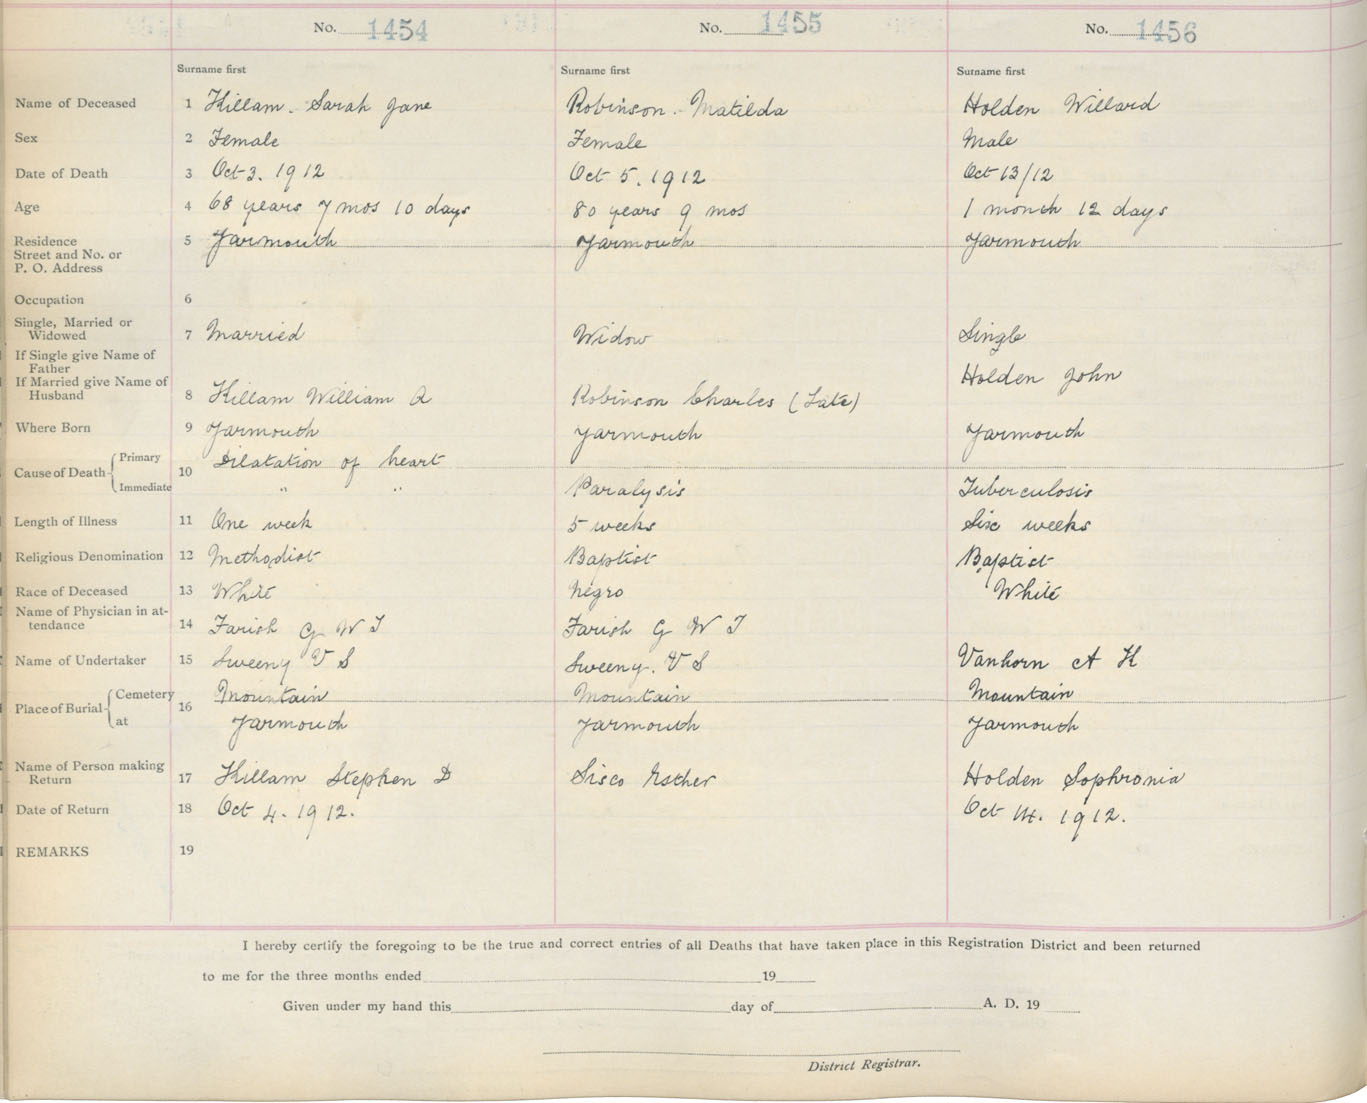 No. 1454 No. 1455 No. 1456
Surname first Surname first Surname first
Name of Deceased 1 Killam. Sarah Jane Robinson. Matilda Holden Willard
Sex 2 Female Female Male
Date of Death 3 Oct 3. 1912 Oct 5. 1912 Oct 13/12
Age 4 68 years 7 mos 10 days 80 years 9 mos 1 month 12 days
Residence 5 Yarmouth Yarmouth Yarmouth
Street and No. or
P. O. Address
Occupation 6
Single, Married or
Widowed 7 Married Widow Single
If Single give Name of
Father Holden John
If Married give Name of
Husband 8 Killam William A Robinson Charles (Late)
Where Born 9 Yarmouth Yarmouth Yarmouth
Cause of Death Primary 10 Dilatation of heart
Immediate " " Paralysis Tuberculosis
Length of Illness 11 One week 5 weeks Six weeks
Religious Denomination 12 Methodist Baptist Baptist
Race of Deceased 13 White Negro White
Name of Physician in at-
tendance 14 Farish G W T Farish G W T
Name of Undertaker 15 Sweeny V S Sweeny. V S Vanhorn A H
Place of Burial Cemetery 16 Mountain Mountain Mountain
at Yarmouth Yarmouth Yarmouth
Name of Person making
Return 17 Killam Stephen D Sisco Esther Holden Sophronia
Date of Return 18 Oct 4. 1912. Oct 14. 1912.
REMARKS 19
I hereby certify the foregoing to be the true and correct entries of all Deaths that have taken place in this Registration District and been returned
to me for the three months ended 19
Given under my hand this day of A. D. 19
District Registrar.